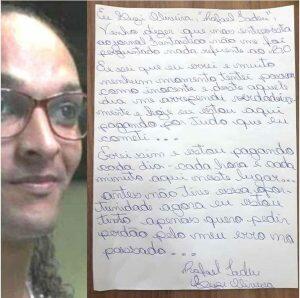 Eu Luizi Oliveira, "Rafael Ladu",
Venho dizer que nas entrevista
ao jornal não me foi
perguntado nada referente ao
Eu sei que eu errei e muito
nenhum momento tentei passar
como inocente e desde aquele
dia me arrependi verdadeira
mente e hoje eu estou aqui
pagando por tudo que eu
cometi...
Errei sim e estou pagando
cada dia cada hora e cada
minuto aqui neste lugar...
antes não tive essa opor
tunidade agora eu estou
tinto apenas quero pedir
perdão pelo meu erro no
passado...
Rafael Ladu
Oliveira